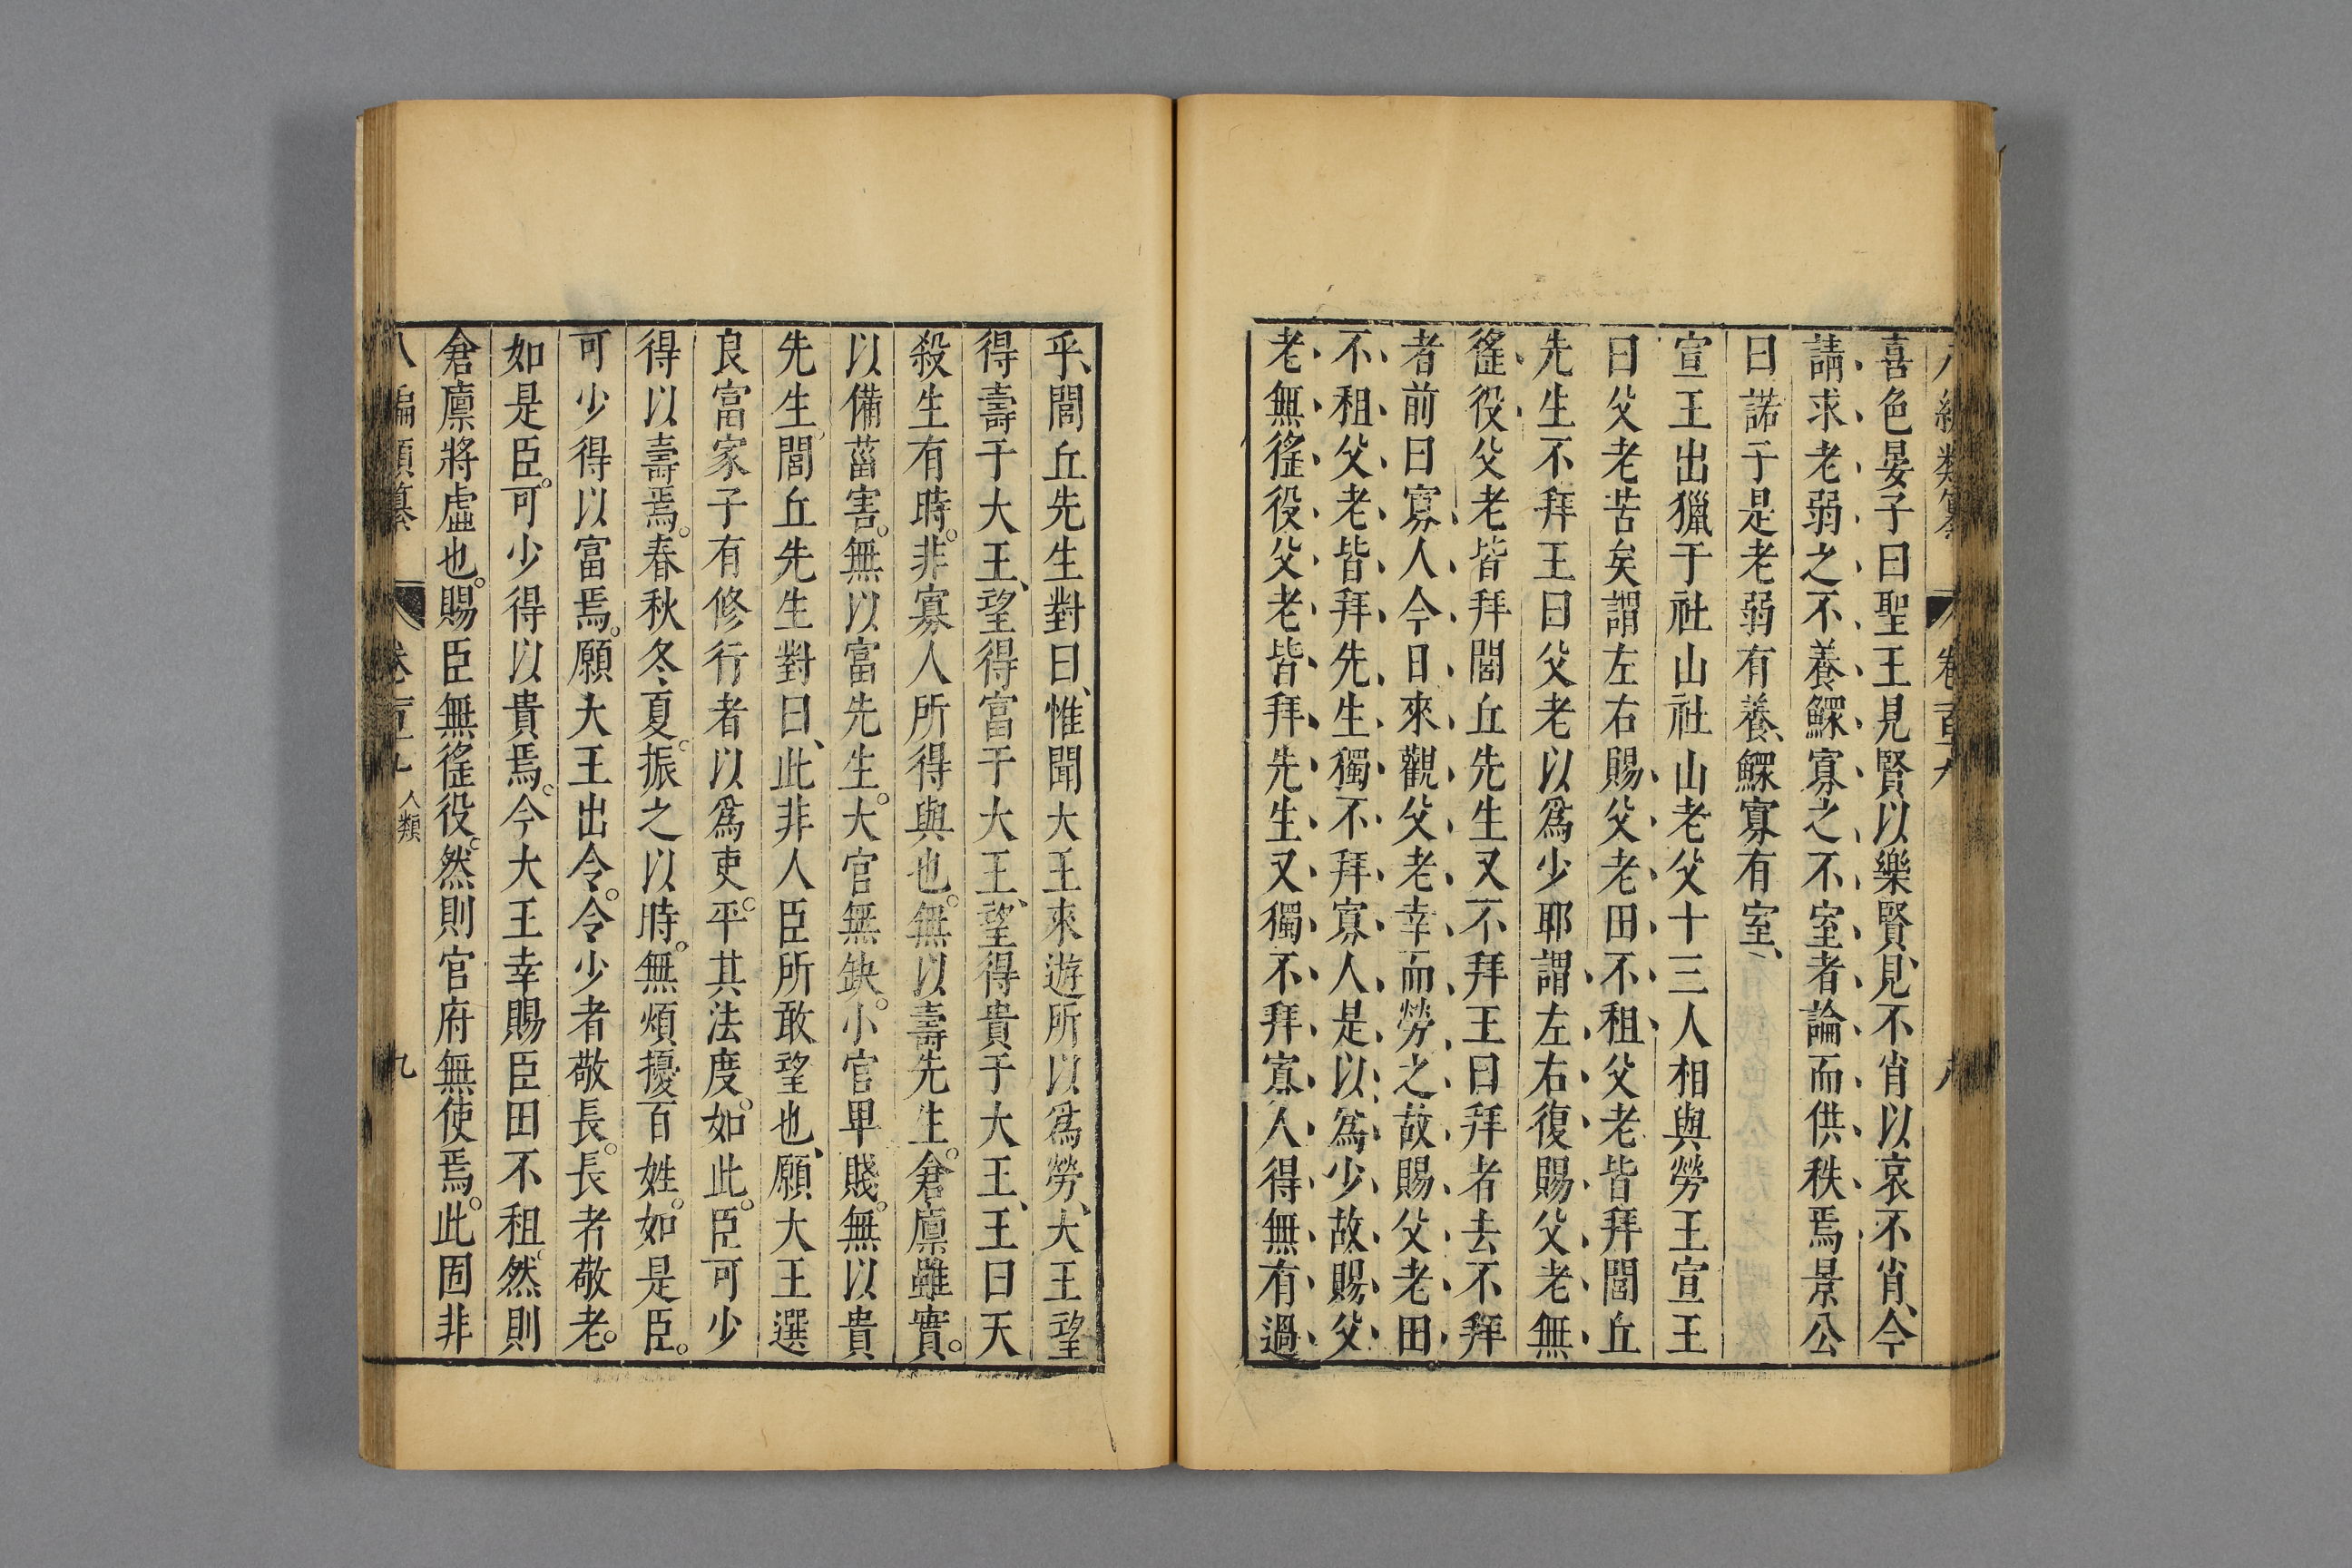 喜色晏子曰聖王見賢以樂賢見不肖以哀不肖今
請求老弱之不養鰥寡之不室者論而供秩焉景公
曰諾于是老弱有養鰥寡有室
宣王出獵于社山社山老父十三人相與勞王宣王
曰父老苦矣謂左右賜父老田不租父老皆拜閭丘
先生不拜王曰父老以爲少耶謂左右復賜父老無
徭役父老皆拜閭丘先生又不拜王曰拜者去不拜
者前曰寡人今日來觀父老幸而勞之故賜父老田
不租父老皆拜先生獨不拜寡人是以爲少故賜父
老無徭役父老皆拜先生又獨不拜寡人得無有過
乎閭丘先生對曰惟聞大王來遊所以爲勞大王望
得壽于大王望得富于大王望得貴于大王王曰天
殺生有時非寡人所得與也無以壽先生倉廪雖實
以備菑害無以富先生大官無缺小官卑賤無以貴
先生閭丘先生對曰此非人臣所敢望也願大王選
良富家子有修行者以爲吏平其法度如此臣可少
得以壽焉春秋冬夏振之以時無煩擾百姓如是臣
可少得以富焉願大王出令令少者敬長長者敬老
如是臣可少得以貴焉今大王幸賜臣田不租然則
倉廪將虛也賜臣無徭役然則官府無使焉此固非
八編類纂 卷百九 人類 九